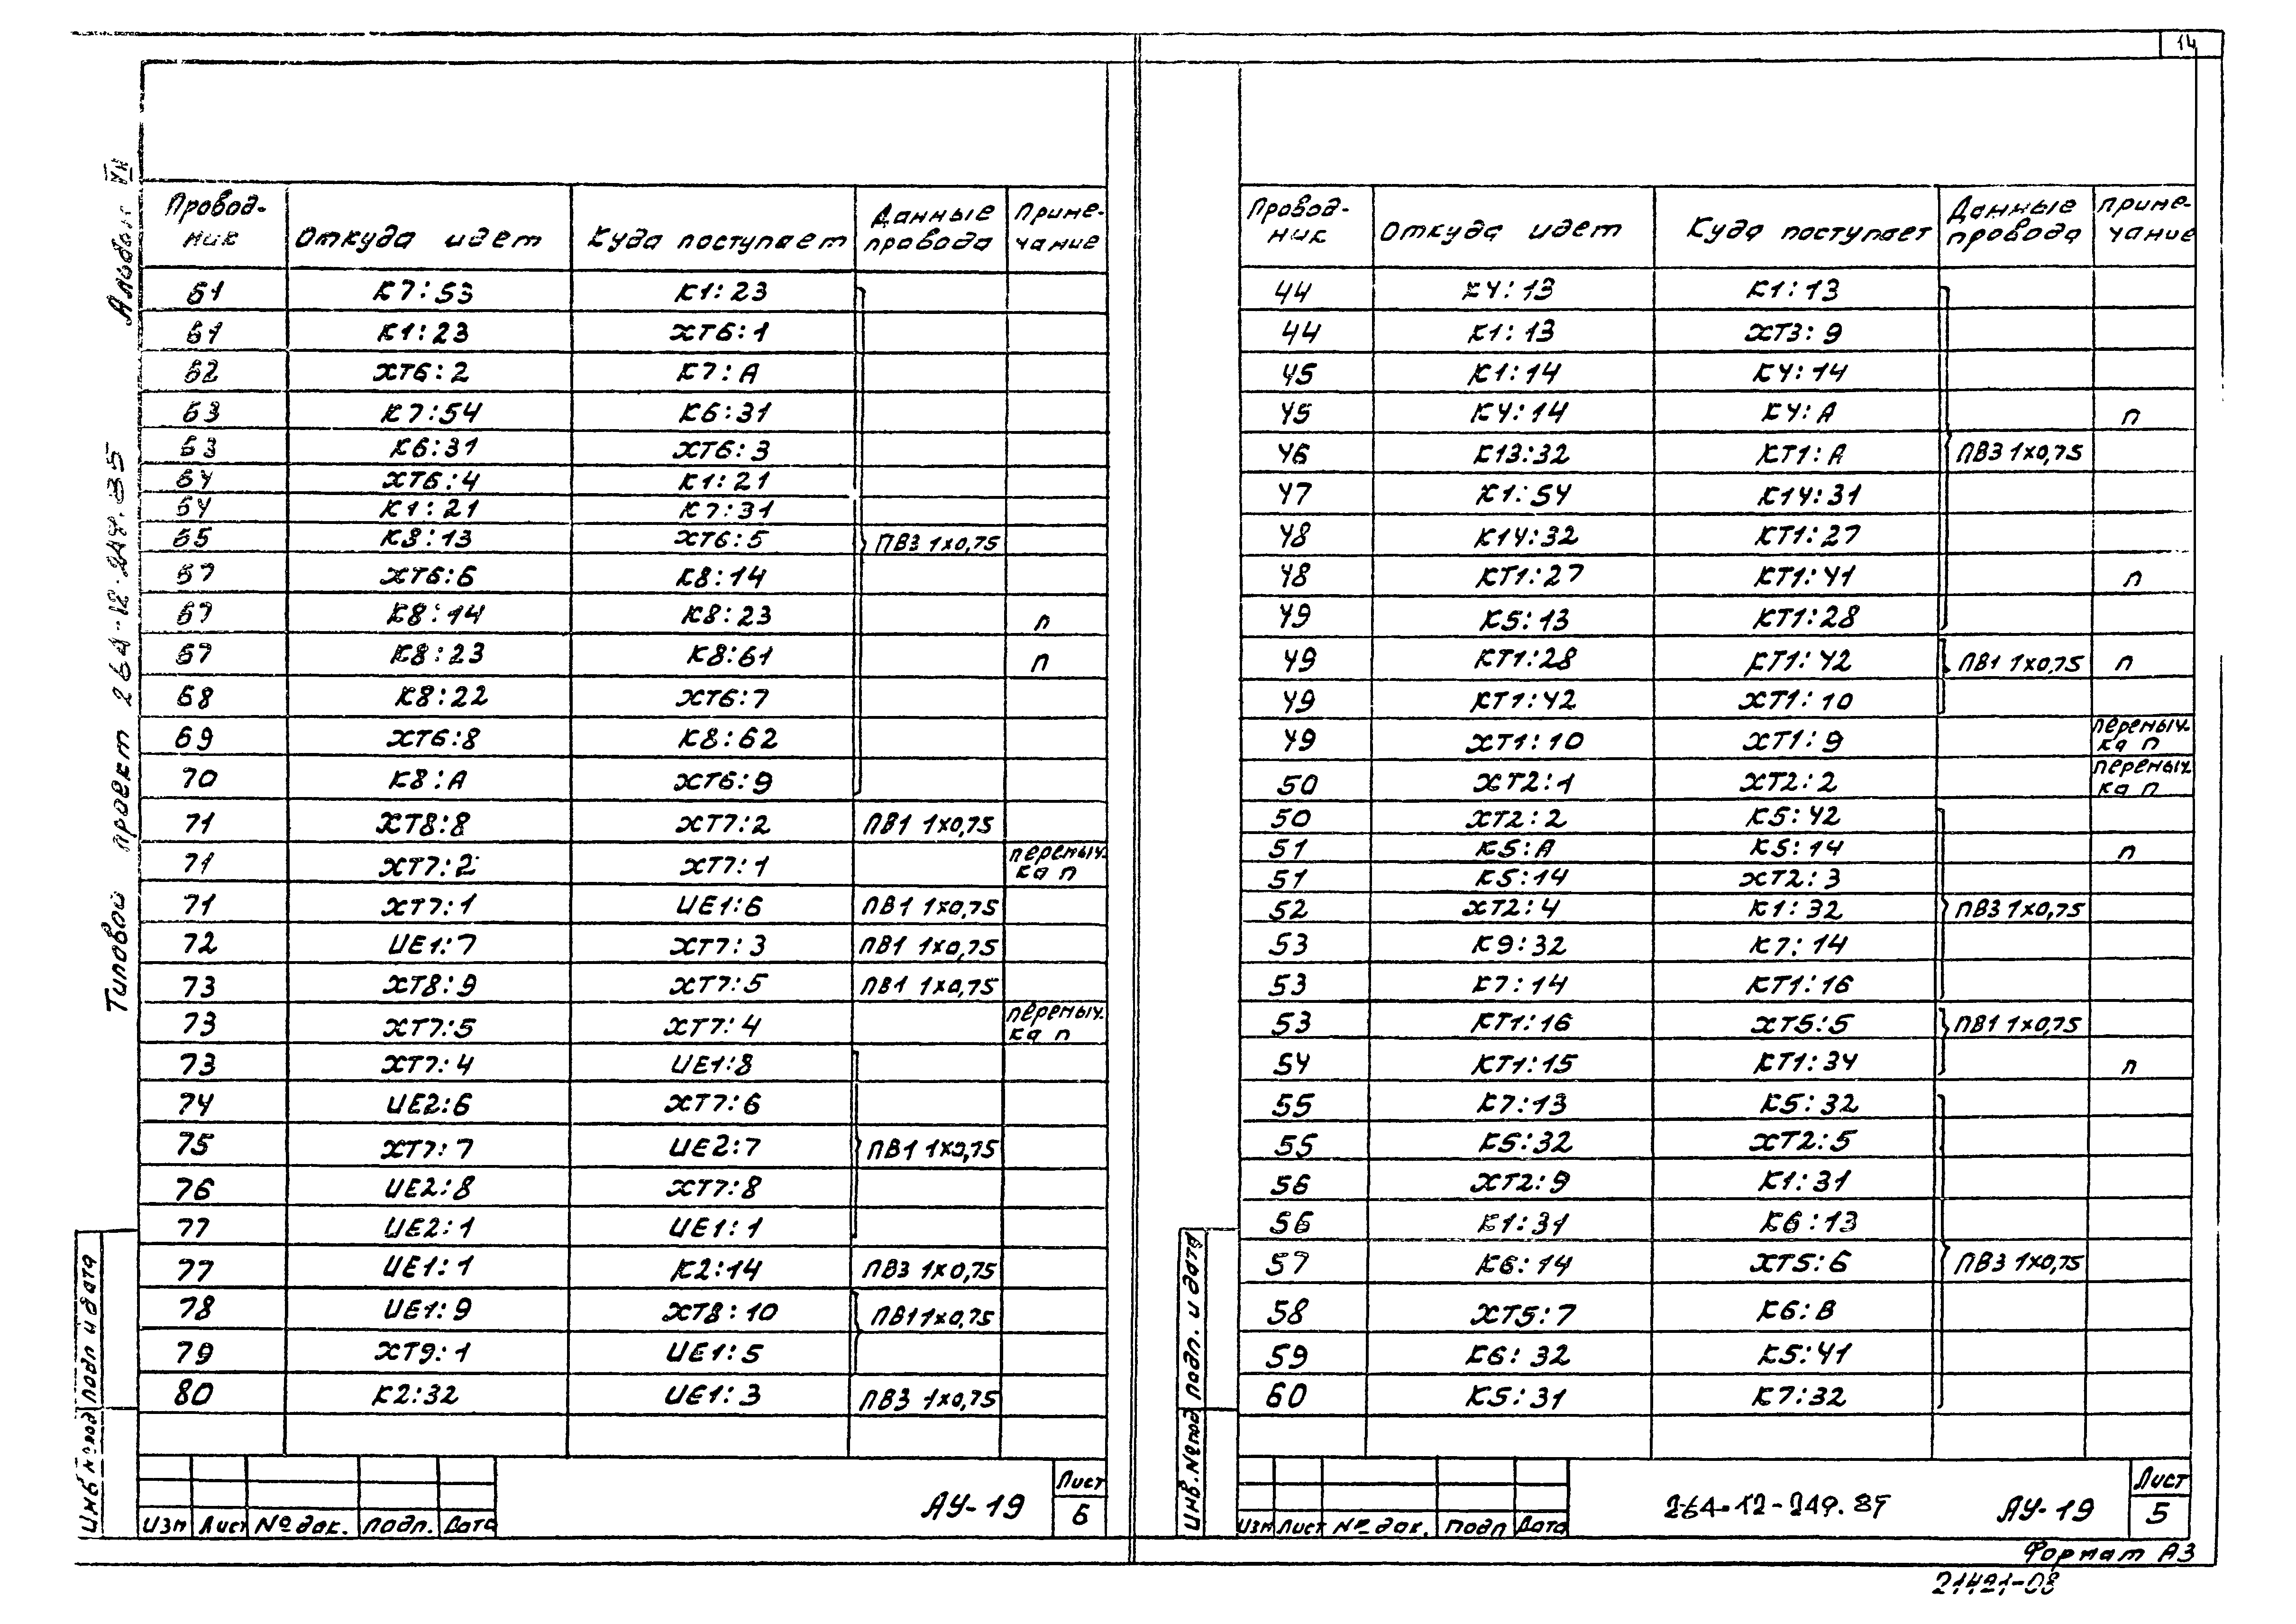 14
Альбом VII
Типовой проект 264-12-249.85
Провод-ник | Откуда идет | Куда поступает | Данные провода | Приме-чание
61 | К7:53 | К1:23
61 | К1:23 | ХТ6:1
62 | ХТ6:2 | К7:А
63 | К7:54 | К6:31
63 | К6:31 | ХТ6:3
64 | ХТ6:4 | К1:21
64 | К1:21 | К7:31
65 | К8:13 | ХТ6:5 | ПВ3 1х0,75
67 | ХТ6:6 | К8:14
67 | К8:14 | К8:23 | п
67 | К8:23 | К8:61 | п
68 | К8:22 | ХТ6:7
69 | ХТ6:8 | К8:62
70 | К8:А | ХТ6:9
71 | ХТ8:8 | ХТ7:2 | ПВ1 1х0,75
71 | ХТ7:2 | ХТ7:1 | перемыч-ка п
71 | ХТ7:1 | UE1:6 | ПВ1 1х0,75
72 | UE1:7 | ХТ7:3 | ПВ1 1х0,75
73 | ХТ8:9 | ХТ7:5 | ПВ1 1х0,75
73 | ХТ7:5 | ХТ7:4 | перемыч-ка п
73 | ХТ7:4 | UE1:8
74 | UE2:6 | ХТ7:6
75 | ХТ7:7 | UE2:7 | ПВ1 1х0,75
76 | UE2:8 | ХТ7:8
77 | UE2:1 | UE1:1
77 | UE1:1 | К2:14 | ПВ3 1х0,75
78 | UE1:9 | ХТ8:10 | ПВ1 1х0,75
79 | ХТ9:1 | UE1:5
80 | К2:32 | UE1:3 | ПВ3 1х0,75
Инв № под | подп и дата
Изм | Лист | № док. | подп. | Дата
АУ-19
Лист
6
Провод-ник | Откуда идет | Куда поступает | Данные провода | Приме-чание
44 | К4:13 | К1:13
44 | К1:13 | ХТ3:9
45 | К1:14 | К4:14
45 | К4:14 | К4:А | п
46 | К13:32 | КТ1:А | ПВ3 1х0,75
47 | К1:54 | К14:31
48 | К14:32 | КТ1:27
48 | КТ1:27 | КТ1:41 | п
49 | К5:13 | КТ1:28
49 | КТ1:28 | КТ1:42 | ПВ1 1х0,75 | п
49 | КТ1:42 | ХТ1:10
49 | ХТ1:10 | ХТ1:9 | перемыч-ка п
50 | ХТ2:1 | ХТ2:2 | перемыч ка п
50 | ХТ2:2 | К5:42
51 | К5:А | К5:14 | п
51 | К5:14 | ХТ2:3
52 | ХТ2:4 | К1:32 | ПВ3 1х0,75
53 | К9:32 | К7:14
53 | К7:14 | КТ1:16
53 | КТ1:16 | ХТ5:5 | ПВ1 1х0,75
54 | КТ1:15 | КТ1:34 | п
55 | К7:13 | К5:32
55 | К5:32 | ХТ2:5
56 | ХТ2:9 | К1:31
56 | К1:31 | К6:13
57 | К6:14 | ХТ5:6 | ПВ3 1х0,75
58 | ХТ5:7 | К6:В
59 | К6:32 | К5:41
60 | К5:31 | К7:32
Инв. № под | подп. и дата
Изм | Лист | № док. | подп | Дата
264-12-249.85
АУ-19
Лист
5
Формат А3
21421-08